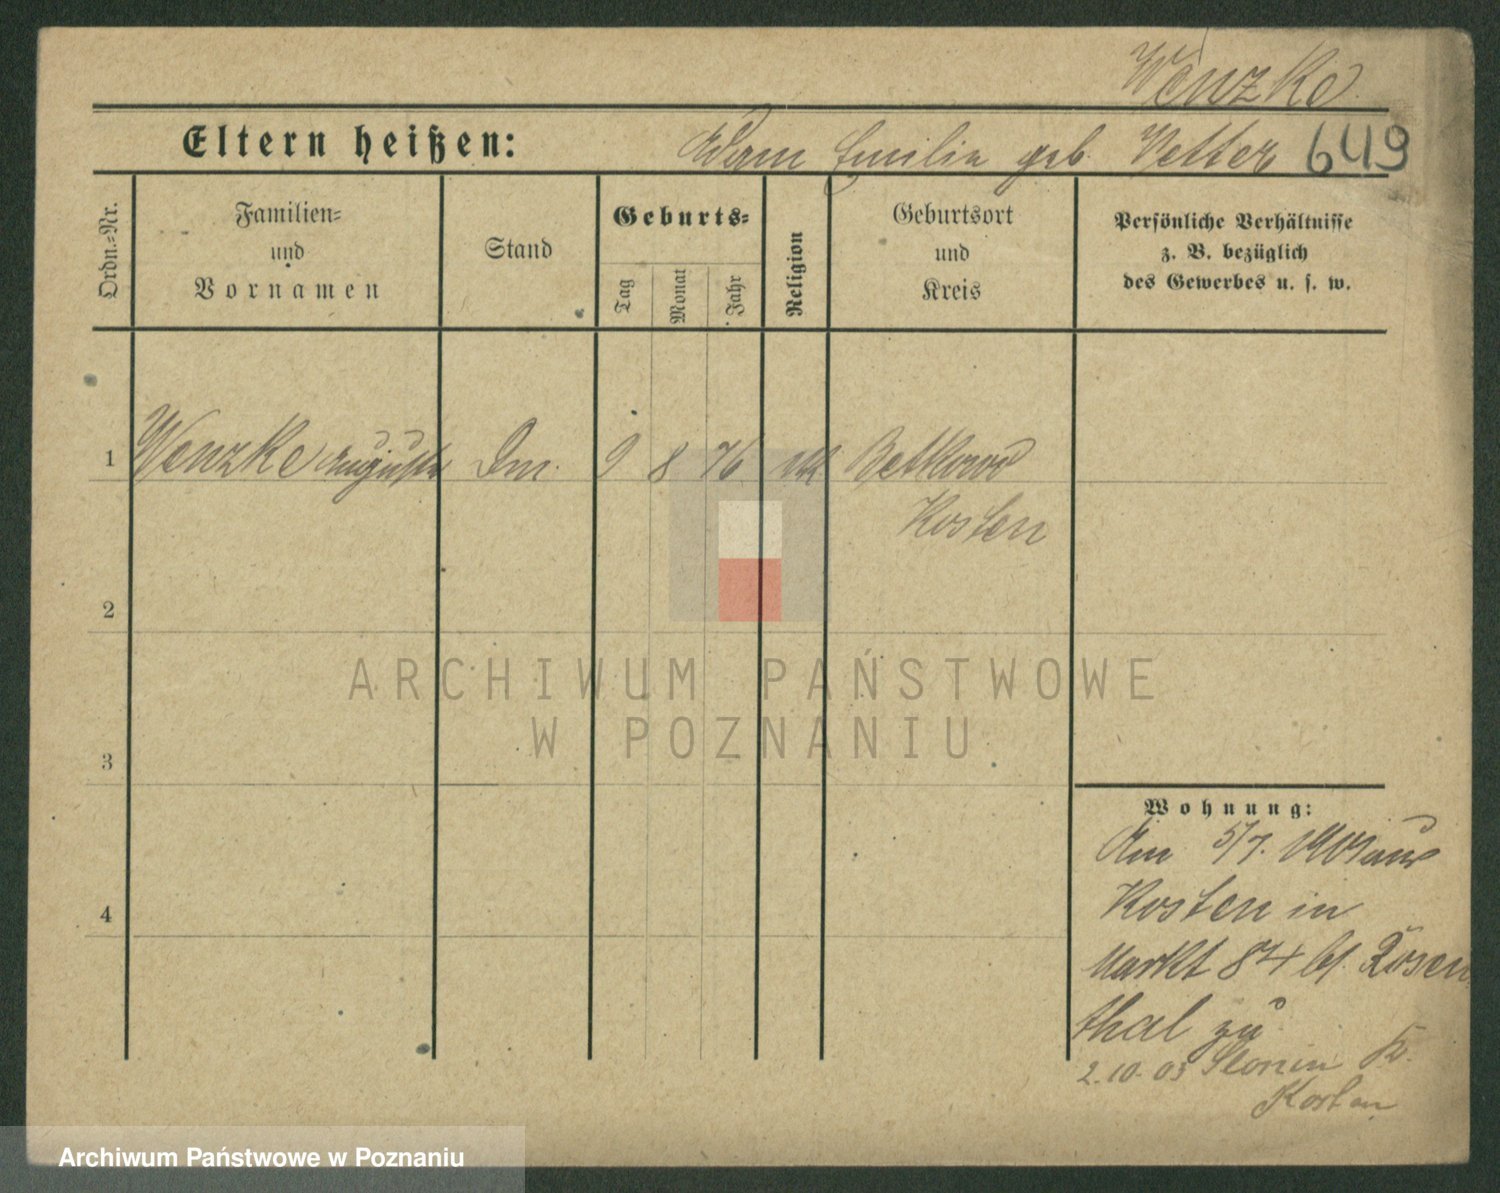 Wenzke
Eltern heißen: Adam Emilie geb. Vetter 649
Ordn.=Nr.
Familien=
und
Vornamen
Stand
Geburts=
Tag
Monat
Jahr
Religion
Geburtsort
und
Kreis
Persönliche Verhältnisse
z. B. bezüglich
des Gewerbes u. s. w.
1 Wenzke Auguste 9 8 76 Betkowo
Kosten
2
3
4
Wohnung:
Am 5/7. aus
Kosten in
Markt 84 bei Rosen
thal zu
2.10.03 Slonin Kr.
Kosten
ARCHIWUM PAŃSTWOWE
W POZNANIU
Archiwum Państwowe w Poznaniu